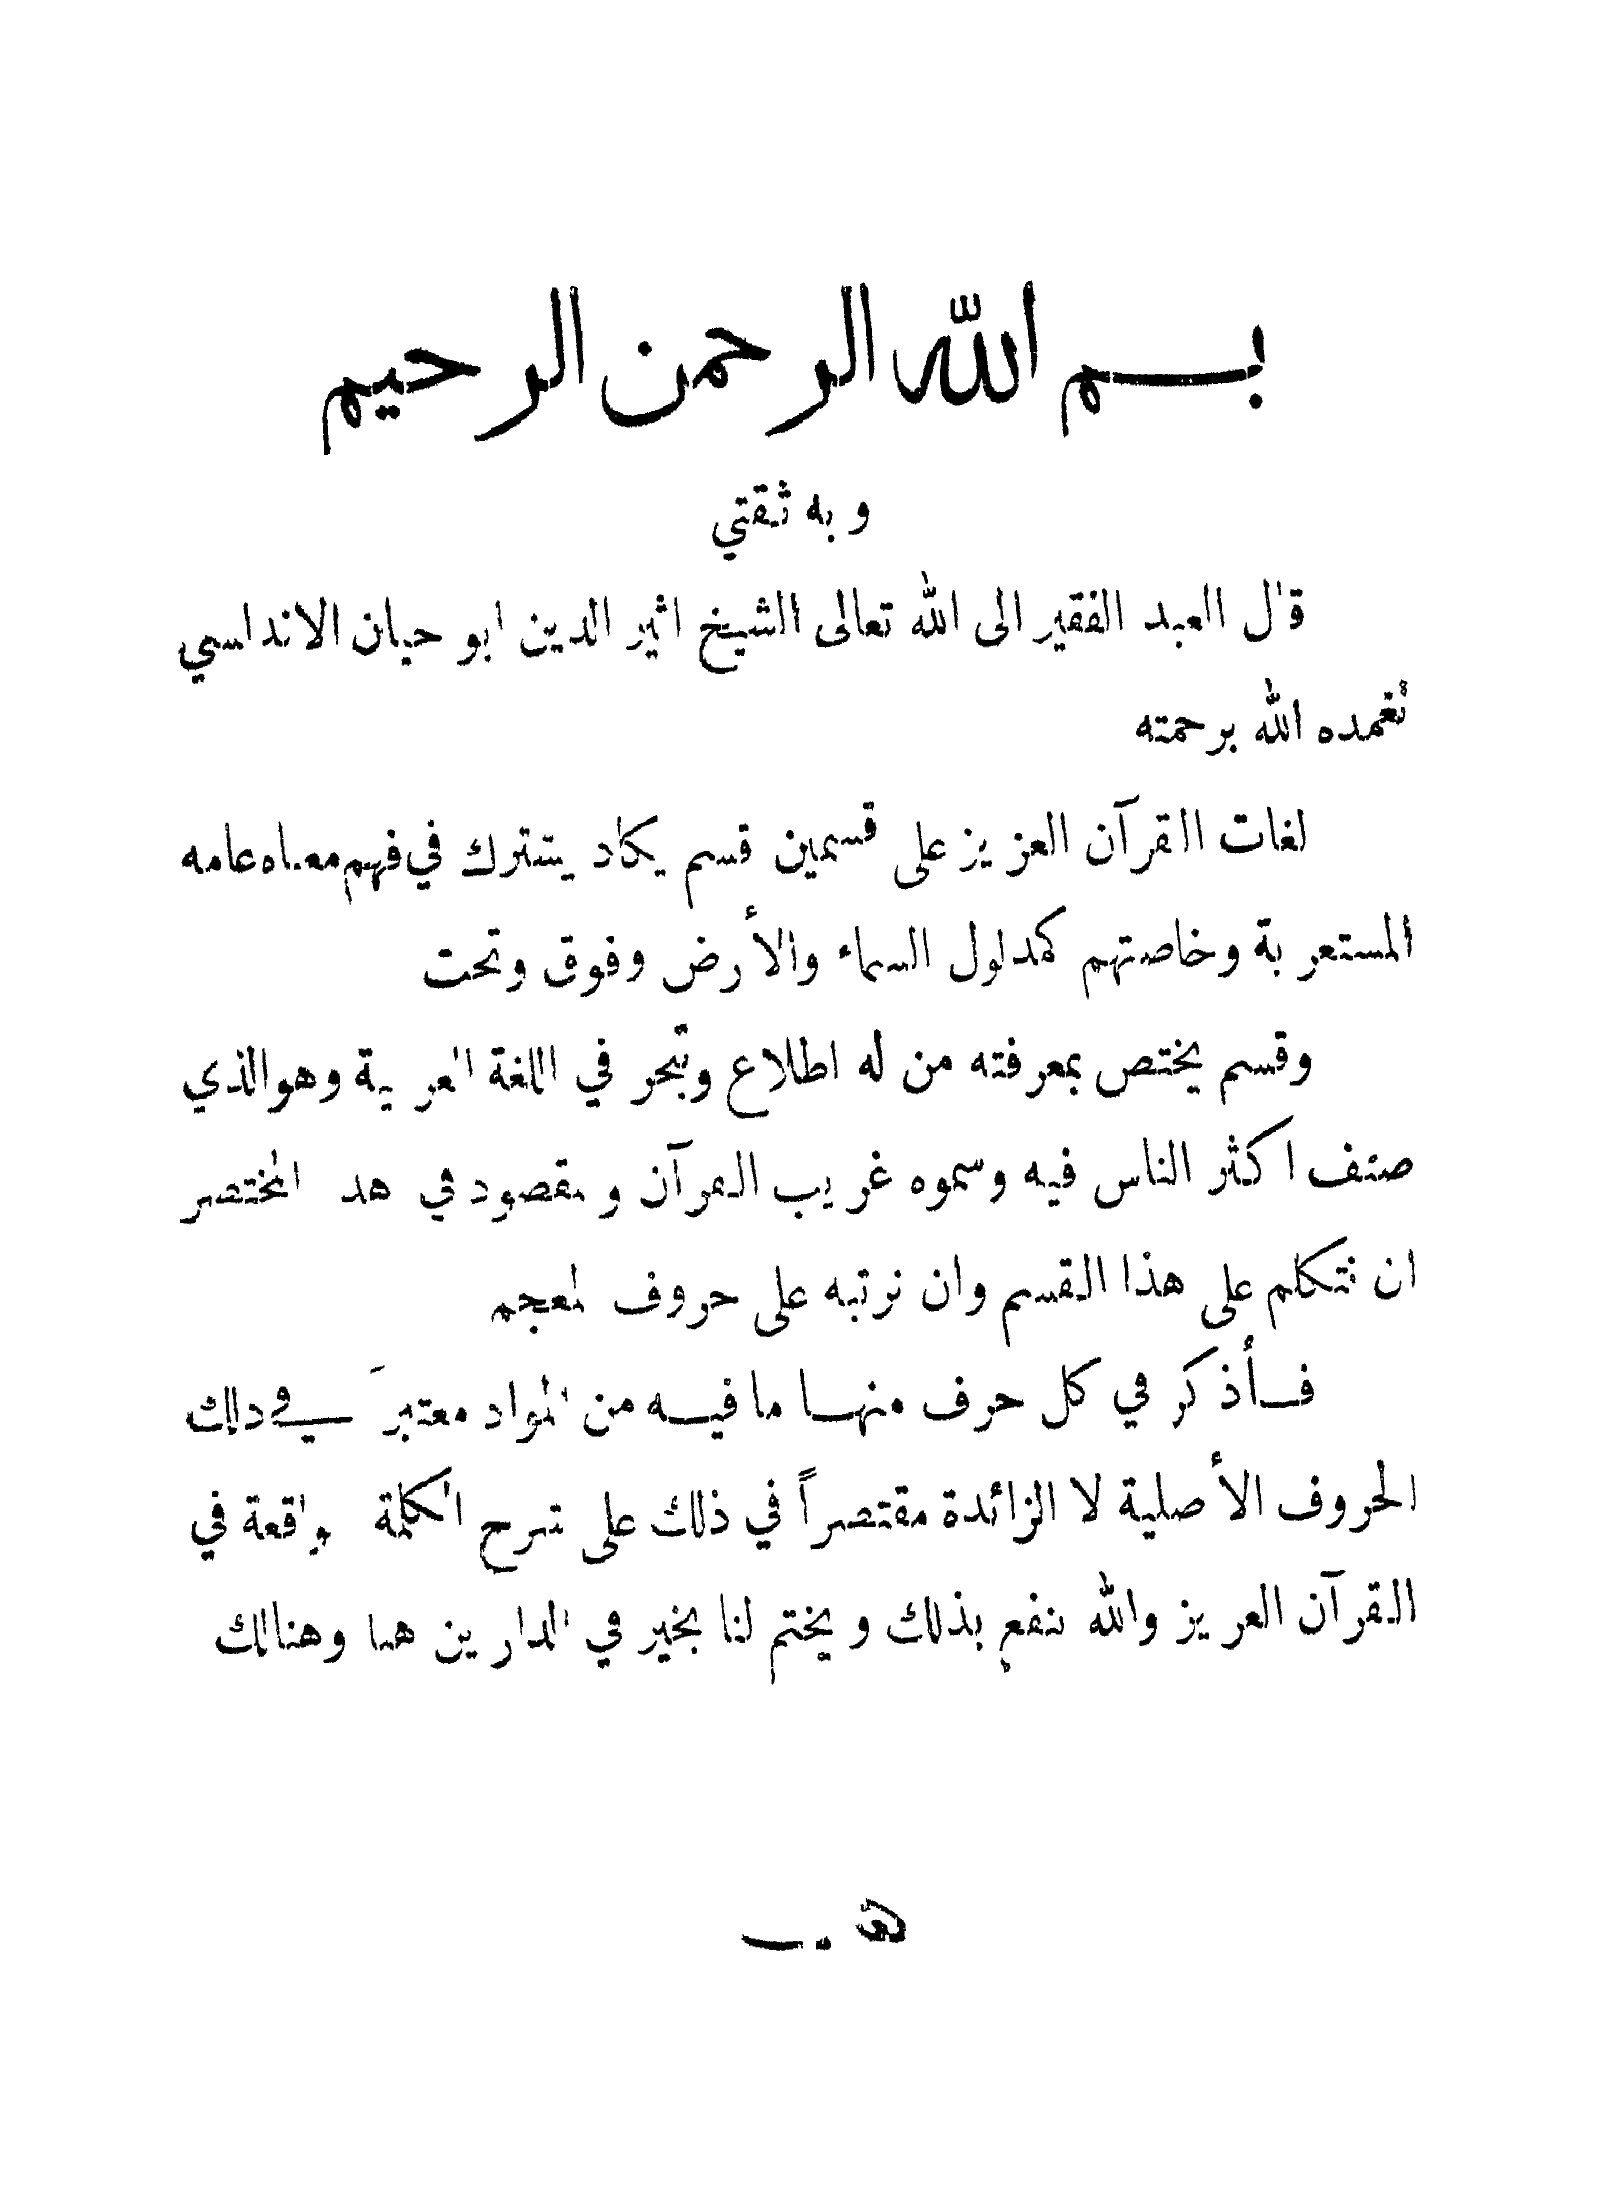 بسم الله الرحمن الرحيم
وبه ثقتي
قال العبد الفقير الى الله تعالى الشيخ اثير الدين ابو حيان الاندلسي
تغمده الله برحمته
لغات القرآن العزيز على قسمين قسم يكاد يشترك في فهم معناه عامه
المستعربة وخاصتهم كمدلول السماء والأرض وفوق وتحت
وقسم يختص بمعرفته من له اطلاع وتبحر في اللغة العربية وهو الذي
صنف اكثر الناس فيه وسموه غريب القرآن والمقصود في هذا المختصر
ان نتكلم على هذا القسم وان نرتبه على حروف المعجم
فأذكر في كل حرف منها ما فيه من المواد معتبراً في ذلك
الحروف الأصلية لا الزائدة مقتصراً في ذلك على شرح الكلمة الواقعة في
القرآن العزيز والله ينفع بذلك ويختم لنا بخير في الدارين هنا وهنالك